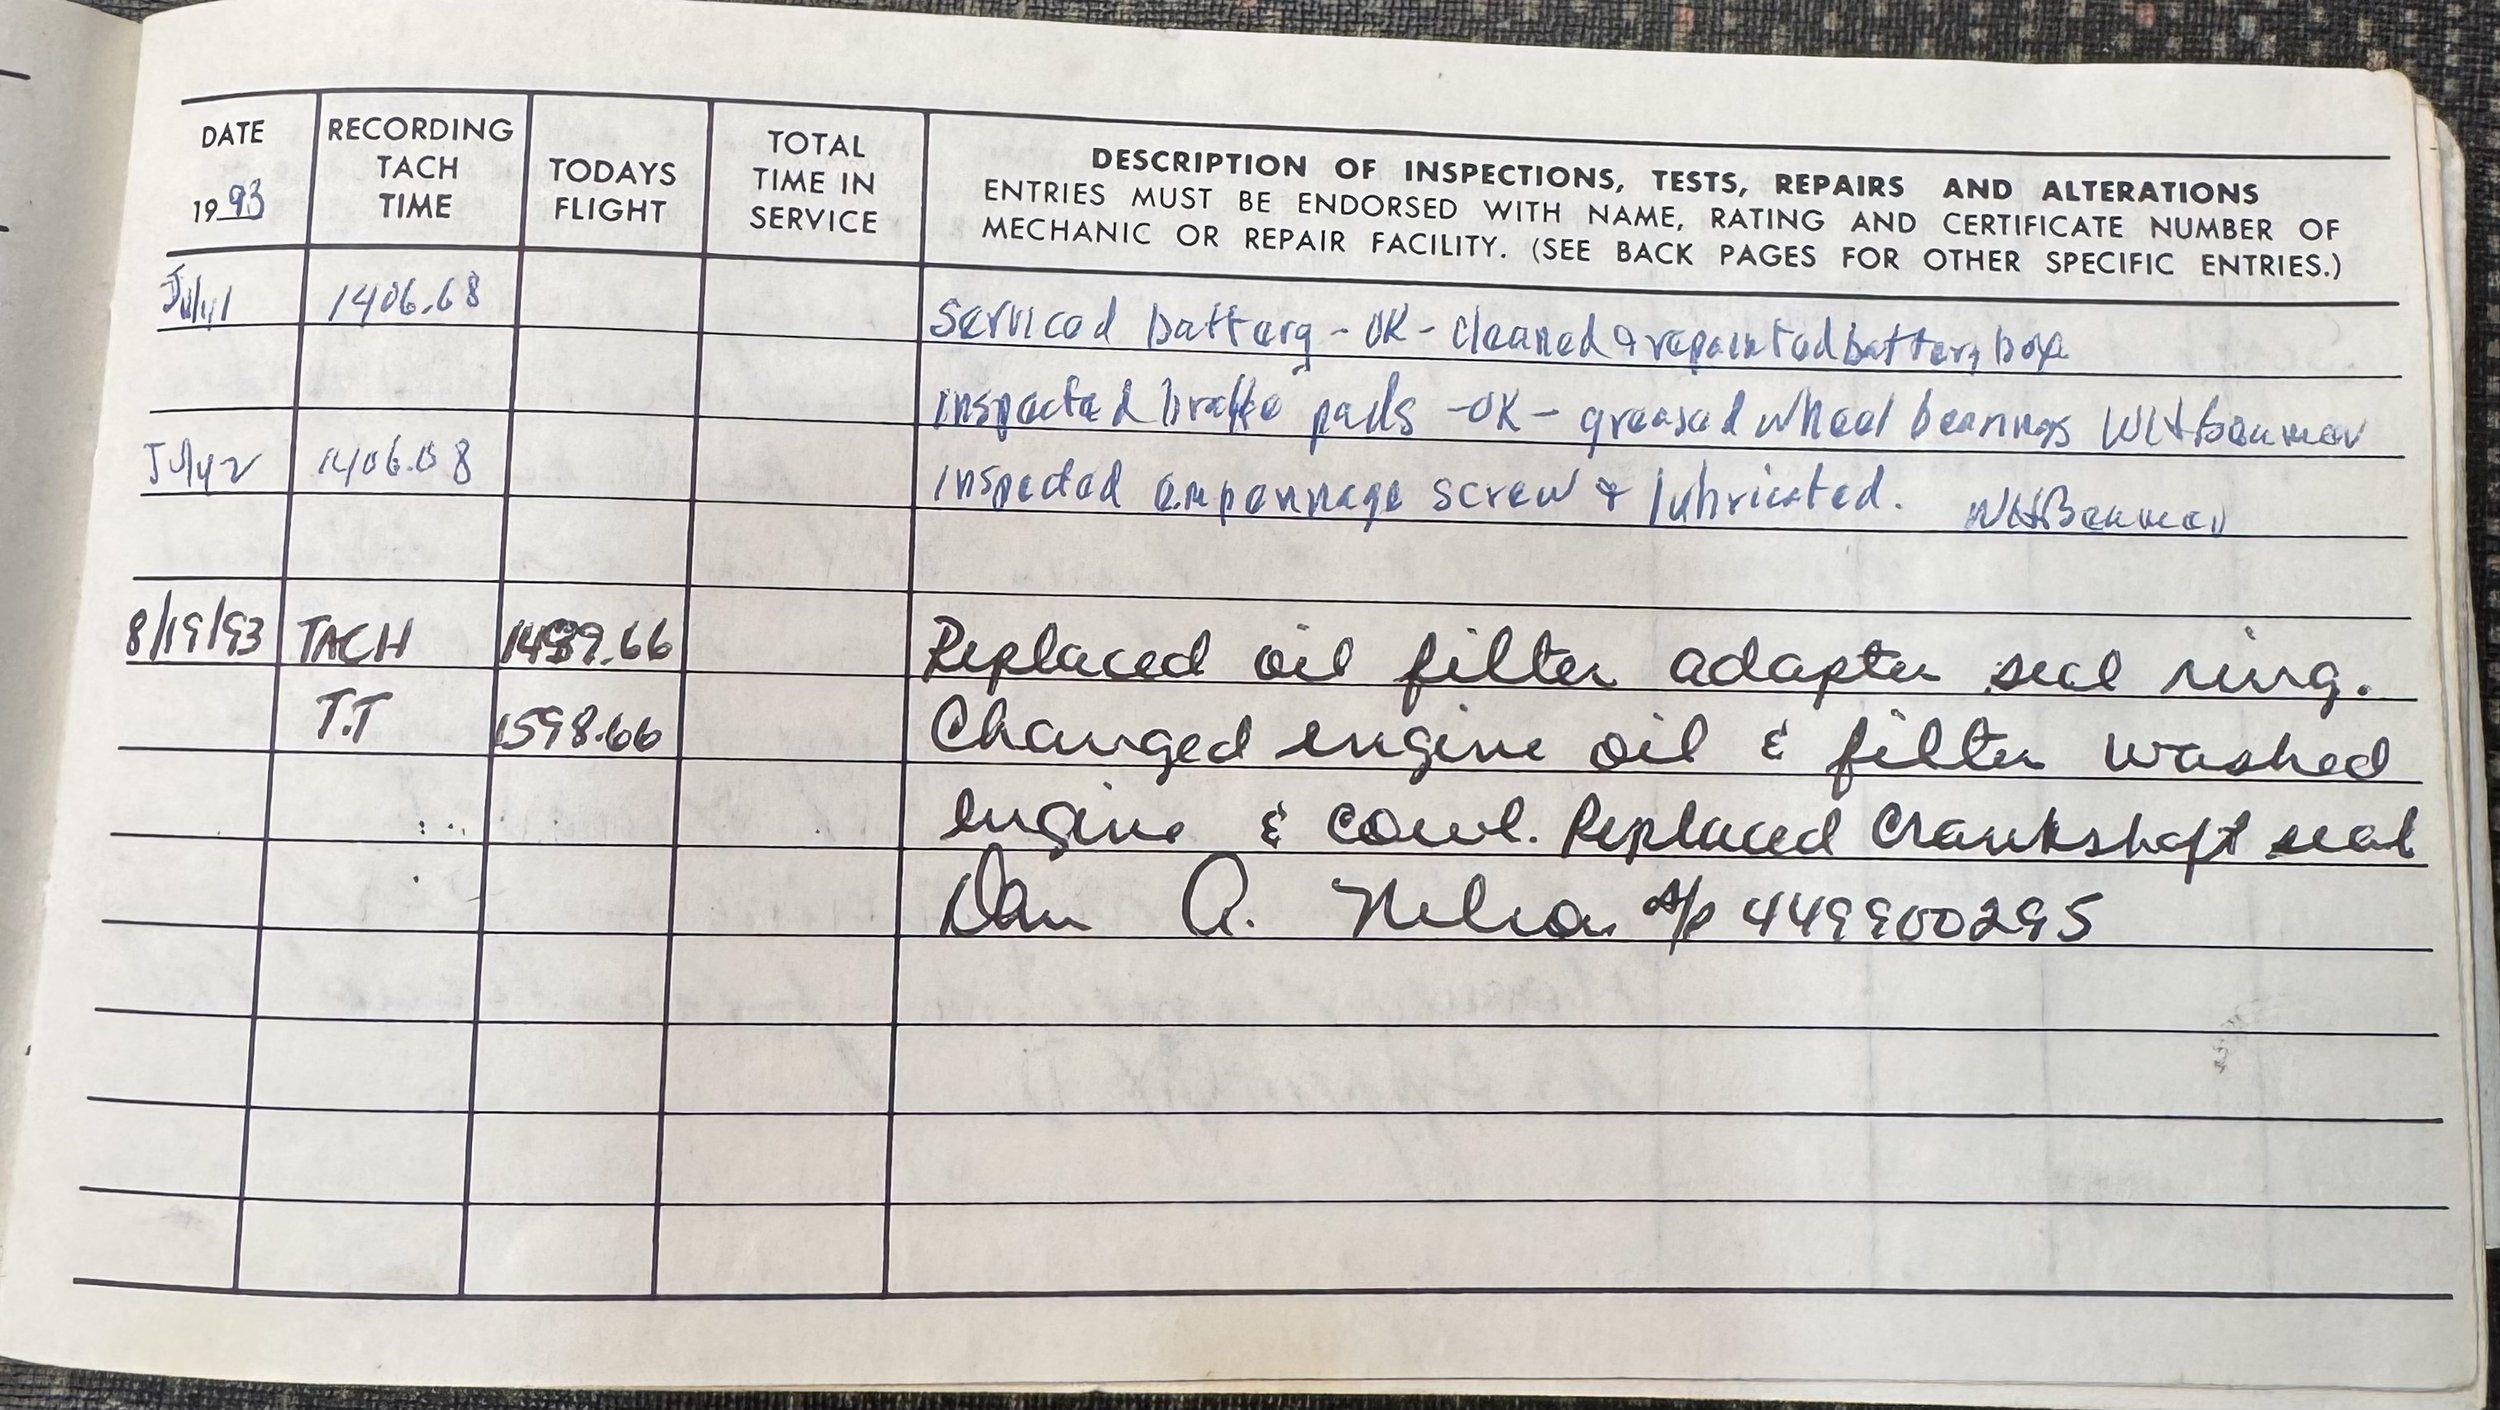 DATE
1993
RECORDING
TACH
TIME
TODAYS
FLIGHT
TOTAL
TIME IN
SERVICE
DESCRIPTION OF INSPECTIONS, TESTS, REPAIRS AND ALTERATIONS
ENTRIES MUST BE ENDORSED WITH NAME, RATING AND CERTIFICATE NUMBER OF
MECHANIC OR REPAIR FACILITY. (SEE BACK PAGES FOR OTHER SPECIFIC ENTRIES.)
July 1 1406.68 Serviced battery - OK - cleaned & repainted battery box
inspected brake pads - OK - greased wheel bearings
July 2 inspected empennage screw & lubricated.
8/19/93 TACH Replaced oil filter adapter seal ring.
T.T 1598.66 Changed engine oil & filter washed
engine & cowl. Replaced Crankshaft seal
Dan A. Nelson A/P 449900295